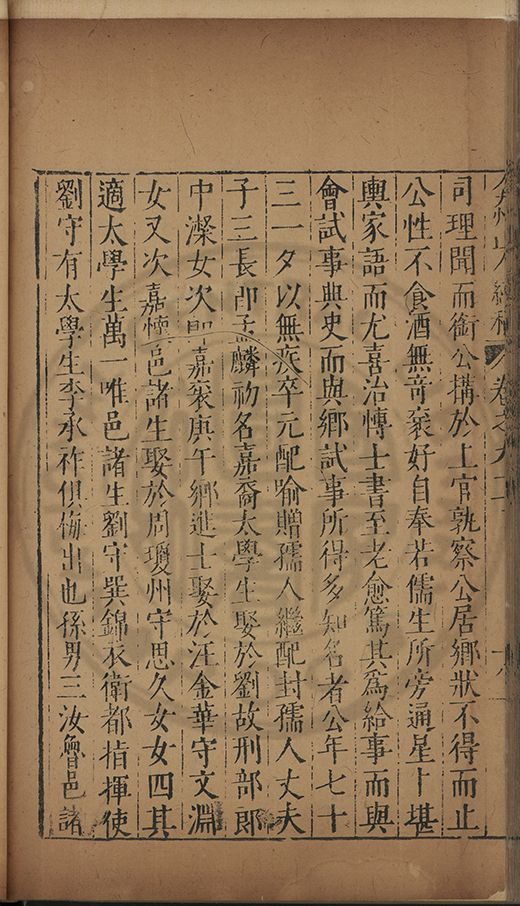 司理聞而銜公搆於上官孰察公居鄉狀不得而止
公性不食酒無竒袤好自奉若儒生所旁通星卜堪
輿家語而尤喜治愽士書至老愈篤其爲給事而與
會試事典史而與鄉試事所得多知名者公年七十
三一夕以無疾卒元配喻贈孺人繼配封孺人丈夫
子三長卽孟麟初名嘉裔太學生娶於劉故刑部郎
中濼女次卽嘉袞庚午鄉進士娶於汪金華守文淵
女又次嘉懷邑諸生娶於周瓊州守思久女女四其
適太學生萬一唯邑諸生劉守巽錦衣衛都指揮使
劉守有太學生李承祚俱側出也孫男三汝魯邑諸